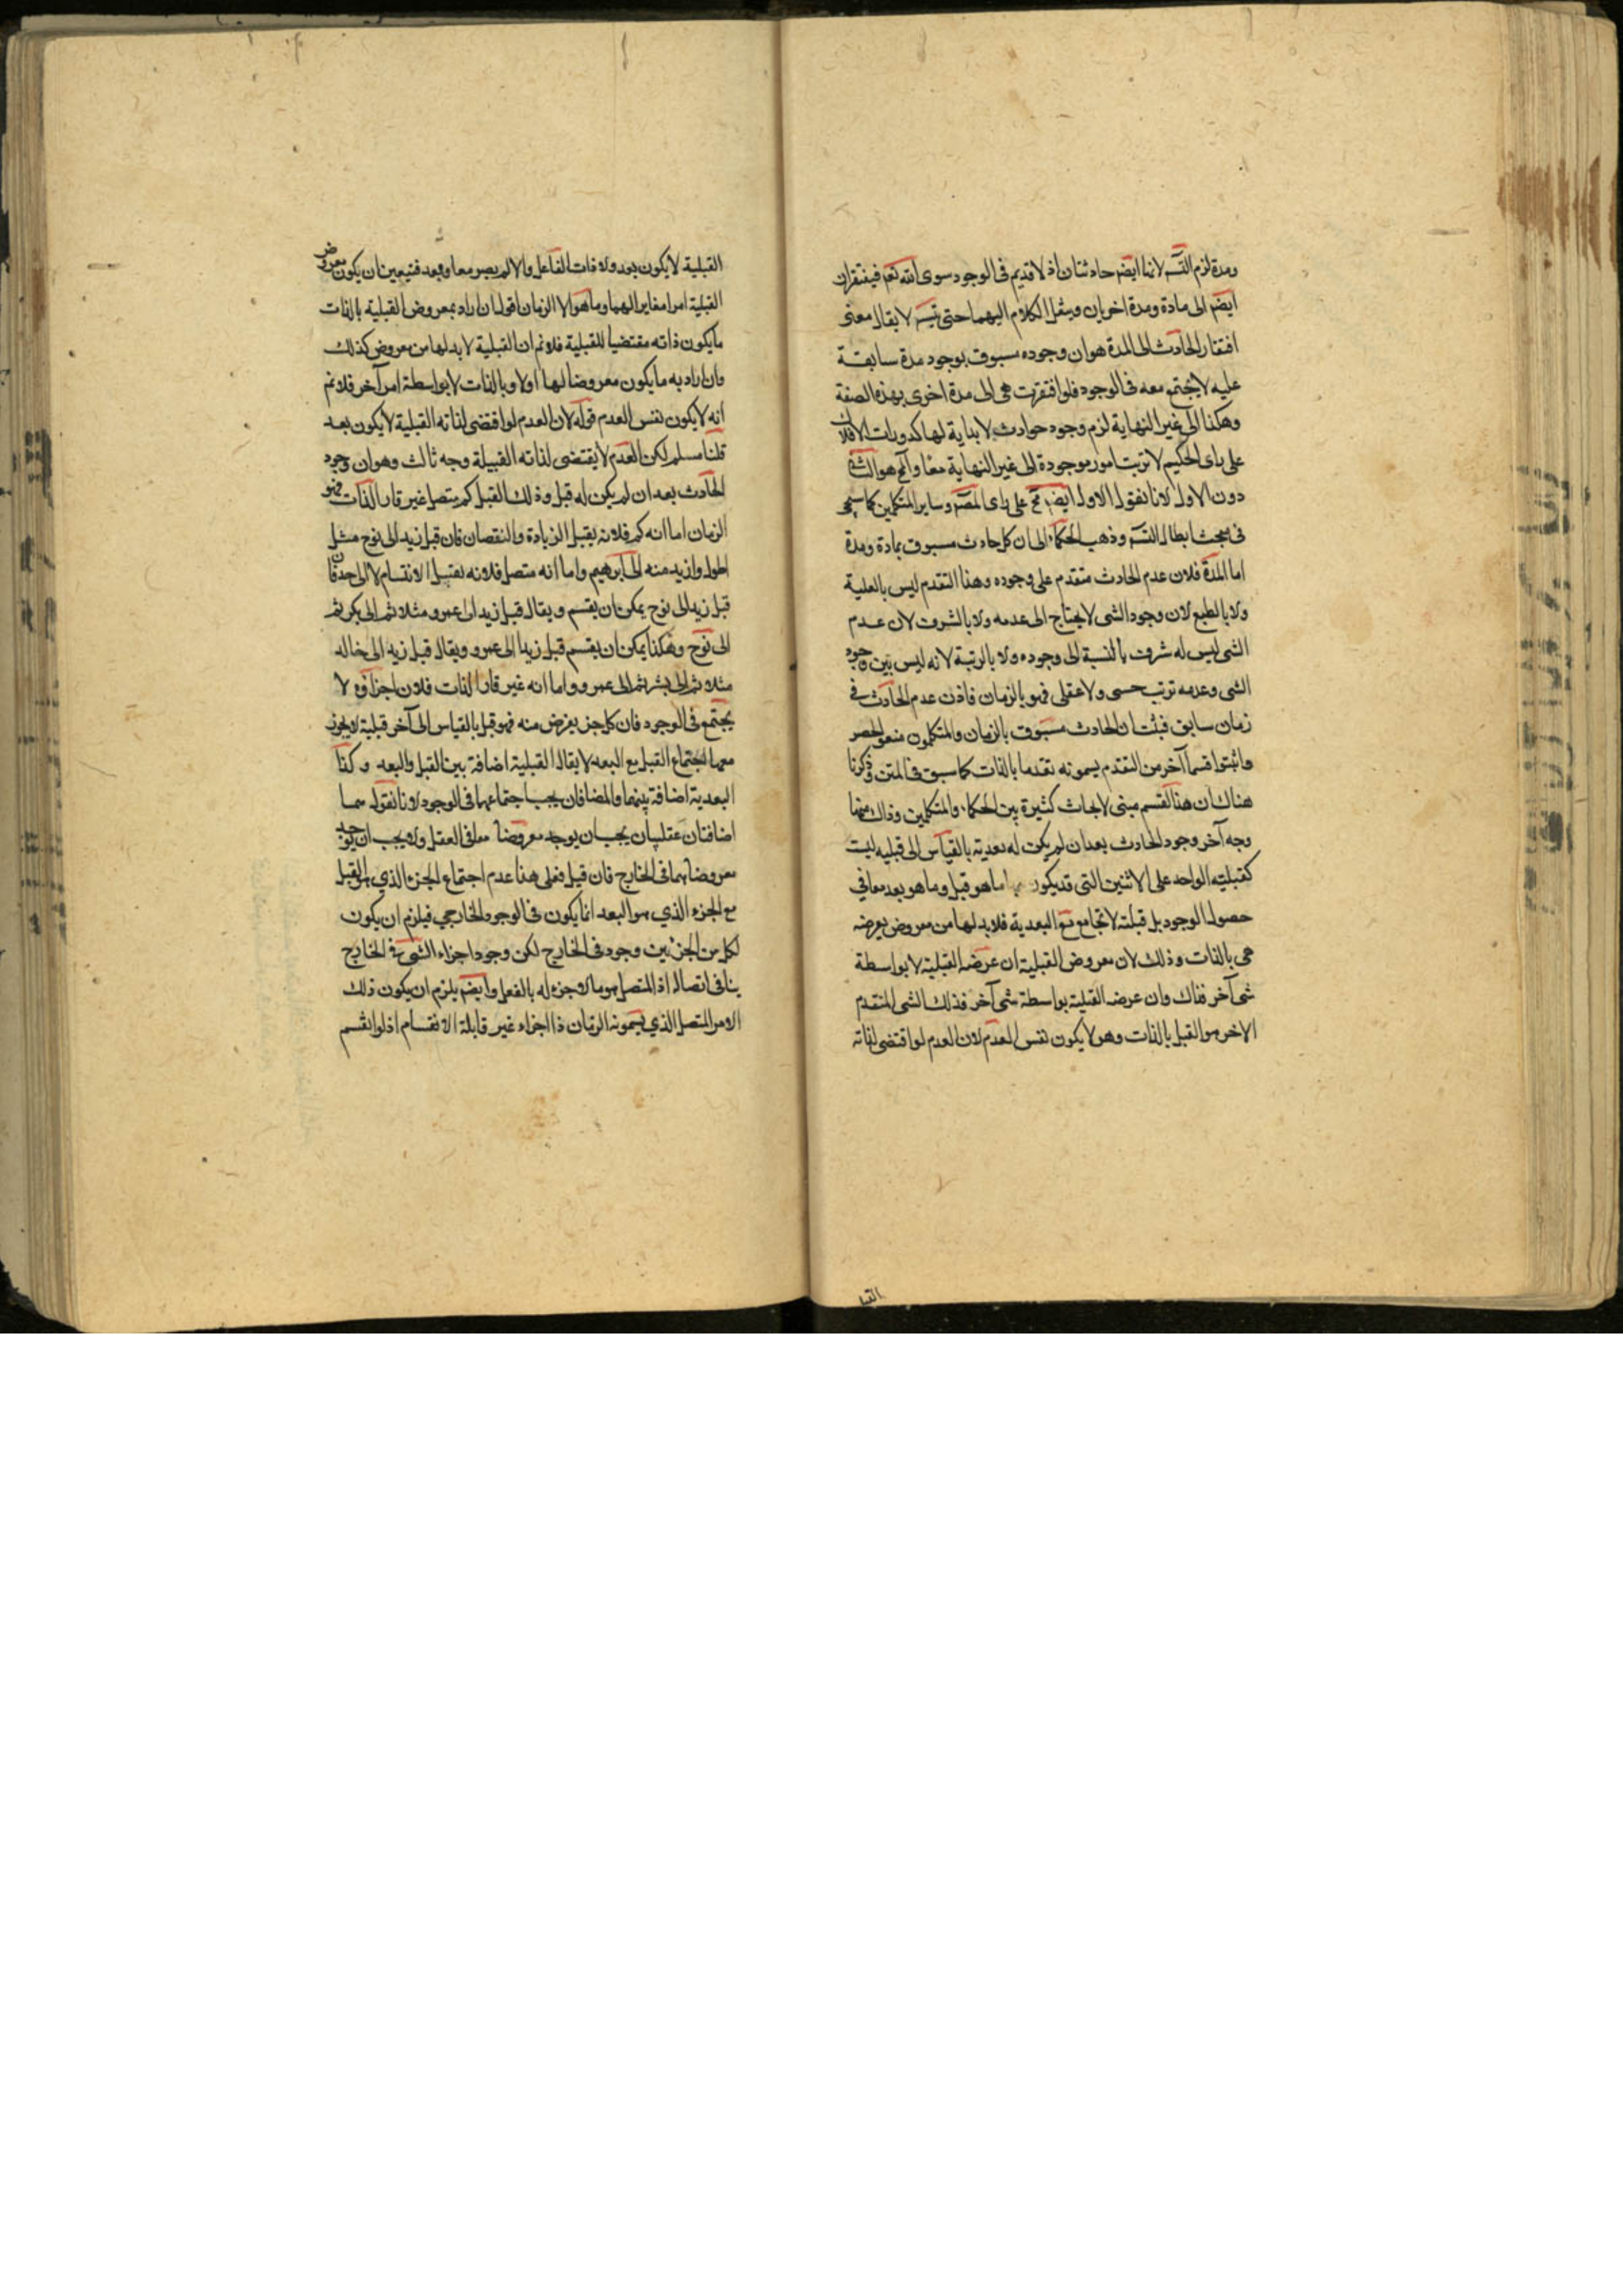 ومدة لزم التسـ لانهما ايضـ حادثتان اذ لا قديم في الوجود سوى الله تعـ فيفتقران
ايضـ الى مادة ومدة اخريان وينقل الكلام اليهما حتى يتسـ لا يقال معنى
افتقار الحادث الى المدة هو ان وجوده مسبوق بوجود مدة سابقة
عليه لا يجتمع معه في الوجود فلو افتقرت هي الى مدة اخرى بهذه الصفة
وهكذا الى غير النهاية لزم وجود حوادث لا بداية لها كدورات الافلاك
على راى الحكيم لا ترتب امور موجودة الى غير النهاية معا والمح هو الثا
دون الاول لانا نقول الاول ايضـ مح على راى المصـ وساير المتكلمين كما سيجـ
في مبحث ابطال التسـ وذهب الحكماء الى ان كل حادث مسبوق بمادة ومدة
اما المدة فلان عدم الحادث متقدم على وجوده وهذا التقدم ليس بالعلية
ولا بالطبع لان وجود الشى لا يحتاج الى عدمه ولا بالشرف لان عدم
الشى ليس له شرف بالنسبة الى وجوده ولا بالرتبة لانه ليس بين وجود
الشى وعدمه ترتب حسى ولا عقلى فهو بالزمان فاذن عدم الحادث في
زمان سابق فثبت ان الحادث مسبوق بالزمان والمتكلمون منعوا الحصر
واثبتوا قسما آخر من التقدم يسمونه تقدما بالذات كما سبق في المتن وذكرنا
هناك ان هذا القسم مبنى لابحاث كثيرة بين الحكماء والمتكلمين وذاك منها
وجه آخر وجود الحادث بعد ان لم يكن له بعدية بالقياس الى قبلية ليست
كقبلية الواحد على الاثنين التي قد يكون ما هو قبل وما هو بعد معا في
حصول الوجود بل قبلية لا تجامع مع البعدية فلا بد لها من معروض يعرضه
هي بالذات وذلك لان معروض القبلية ان عرضه القبلية لا بواسطة
شى آخر فذاك وان عرضه القبلية بواسطة شى آخر فذلك الشى المتقدم
الاخر هو القبل بالذات وهو لا يكون نفس العدم لان العدم لو اقتضى لذاته
القبلية لا يكون بعد ولا ذات الفاعل والا لم يصر معا وبعد فتعين ان يكون معروض
القبلية امرا مغايرا لهما وما هو الا الزمان اقول ان اراد بمعروض القبلية بالذات
ما يكون ذاته مقتضيا للقبلية فلا نم ان القبلية لا بد لها من معروض كذلك
وان اراد به ما يكون معروضا لها اولا وبالذات لا بواسطة امر آخر فلا نم
انه لا يكون نفس العدم قوله لان العدم لو اقتضى لذاته القبلية لا يكون بعد
قلنا مسلم لكن العدم لا يقتضى لذاته القبلية وجه ثالث وهو ان وجود
الحادث بعد ان لم يكن له قبل وذلك القبل كم متصل غير قار الذات فهو
الزمان اما انه كم فلانه يقبل الزيادة والنقصان فان قبل زيد الى نوح مثل
اطول وازيد منه الى ابرهيم واما انه متصل فلانه يقبل الانقسام لا الى حد فان
قبل زيد الى نوح يمكن ان يقسم ويقال قبل زيد الى عمرو مثلا ثم الى بكر ثم
الى نوح وهكذا يمكن ان يقسم قبل زيد الى عمرو ويقال قبل زيد الى خالد
مثلا ثم الى بشر ثم الى عمرو واما انه غير قار الذات فلان اجزاؤه لا
يجتمع في الوجود فان كل جزء يفرض منه فهو قبل بالقياس الى آخر قبلية لا يجوز
معها اجتماع القبل مع البعد لا يقال القبلية اضافة بين القبل والبعد وكذا
البعدية اضافة بينهما والمضافان يجب اجتماعهما في الوجود لانا نقول هما
اضافتان عقليتان يجب ان يوجد معروضاهما في العقل ولا يجب ان يوجد
معروضاهما في الخارج فان قيل فعلى هذا عدم اجتماع الجزء الذي هو القبل
مع الجزء الذي هو البعد انما يكون في الوجود الخارجي فيلزم ان يكون
لكل من الجزئين وجود في الخارج لكن وجود اجزاء الشى في الخارج
ينافى اتصاله اذ المتصل هو ما لا جزء له بالفعل وايضـ يلزم ان يكون ذلك
الامر المتصل الذي يسمونه الزمان ذا اجزاء غير قابلة الانقسام اذ لو انقسم